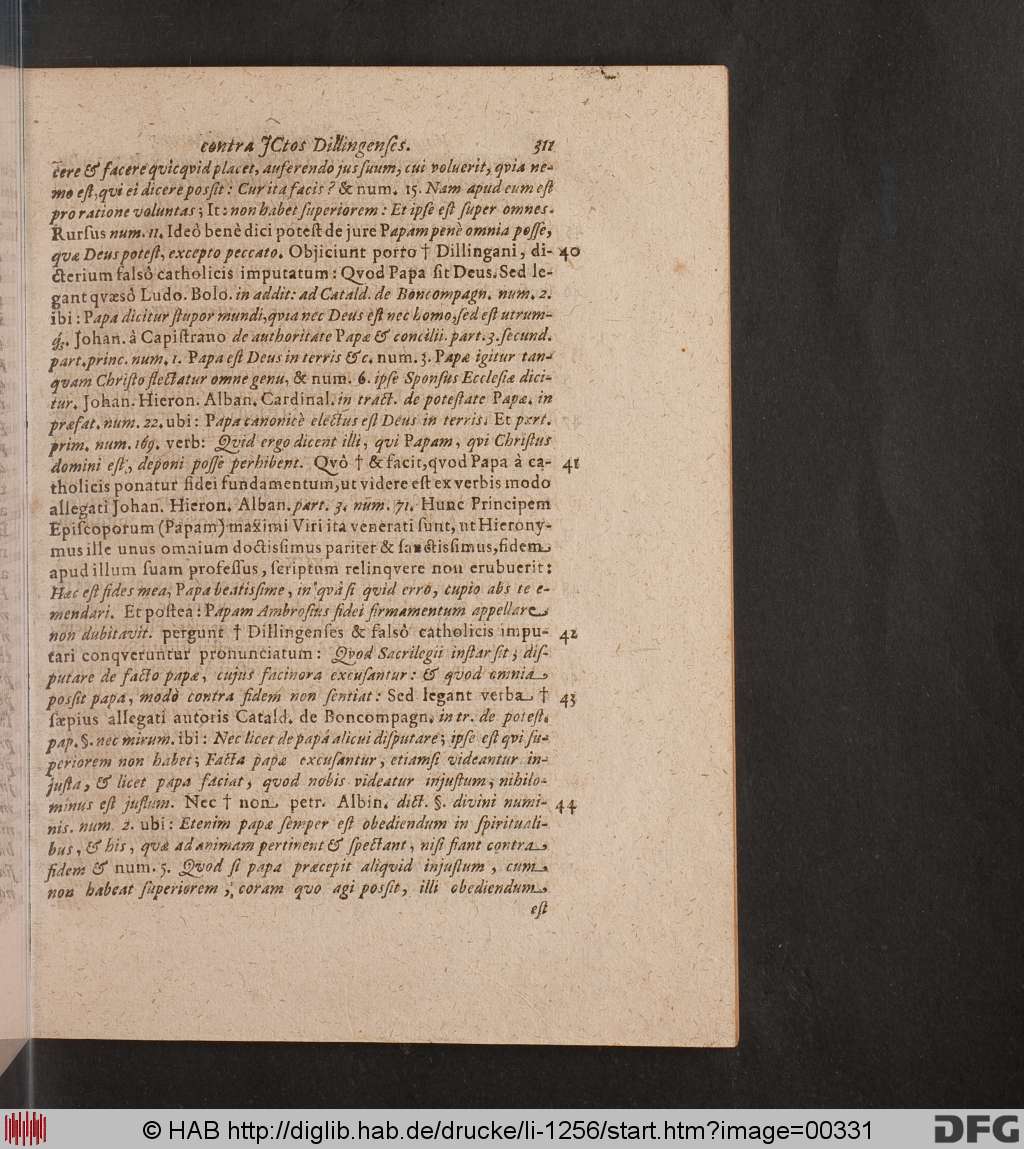 contra JCtos Dillingenſes. 311
cere & facere quicqvid placet, auferendo jus ſuum, cui voluerit, qvia ne-
mo eſt, qui ei dicere poſsit: Cur ita facis? & num. 15. Nam apud eum eſt
pro ratione voluntas; It: non habet ſuperiorem: Et ipſe eſt ſuper omnes.
Rurſus num. 11. Ideò benè dici poteſt de jure Papam penè omnia poſſe,
quæ Deus poteſt, excepto peccato. Objiciunt porro † Dillingani, di- 40
cterium falsô catholicis imputatum: Qvod Papa ſit Deus. Sed le-
gant qvæsô Ludo. Bolo. in addit: ad Catald. de Boncompagn. num. 2.
ibi: Papa dicitur ſtupor mundi, qvia nec Deus eſt nec homo, ſed eſt utrum-
q;. Johan. à Capiſtrano de authoritate Papæ & concilii. part. 3. ſecund.
part. princ. num. 1. Papa eſt Deus in terris &c. num. 3. Papæ igitur tan-
quam Chriſto flectatur omne genu, & num. 6. ipſe Sponſus Eccleſiæ dici-
tur. Johan. Hieron. Alban. Cardinal. in tract. de poteſtate Papæ. in
præfat. num. 22. ubi: Papa canonicè electus eſt Deus in terris. Et part.
prim. num. 169. verb: Qvid ergo dicent illi, qui Papam, qvi Chriſtus
domini eſt, deponi poſſe perhibent. Qvô † & facit, qvod Papa à ca- 41
tholicis ponatur fidei fundamentum, ut videre eſt ex verbis modo
allegati Johan. Hieron. Alban. part. 3. num. 71. Hunc Principem
Epiſcoporum (Papam) maximi Viri ita venerati ſunt, ut Hierony-
mus ille unus omnium doctiſsimus pariter & ſanctiſsimus, fidem
apud illum ſuam profeſſus, ſcriptum relinqvere non erubuerit:
Hæc eſt fides mea, Papa beatiſsime, in quâ ſi quid erro, cupio abs te e-
mendari. Et poſtea: Papam Ambroſius fidei firmamentum appellare
non dubitavit. pergunt † Dillingenſes & falsô catholicis impu- 42
tari conqveruntur pronunciatum: Qvod Sacrilegii inſtar ſit, diſ-
putare de facto papæ, cujus facinora excuſantur: & quod omnia
poſſit papa, modò contra fidem non ſentiat: Sed legant verba † 43
ſæpius allegati autoris Catald. de Boncompagn. in tr. de poteſt.
pap. §. nec mirum. ibi: Nec licet de papâ alicui diſputare; ipſe eſt qvi ſu-
periorem non habet; Facta papæ excuſantur, etiamſi videantur in-
juſta, & licet papa faciat, quod nobis videatur injuſtum, nihilo-
minus eſt juſtum. Nec † non petr. Albin. dict. §. divini numi- 44
nis. num. 2. ubi: Etenim papæ ſemper eſt obediendum in ſpirituali-
bus, & his, quæ ad animam pertinent & ſpectant, niſi fiant contra
fidem & num. 5. Quod ſi papa præcepit aliqvid injuſtum, cum
non habeat ſuperiorem, coram quo agi poſſit, illi obediendum
eſt
© HAB http://diglib.hab.de/drucke/li-1256/start.htm?image=00331
DFG